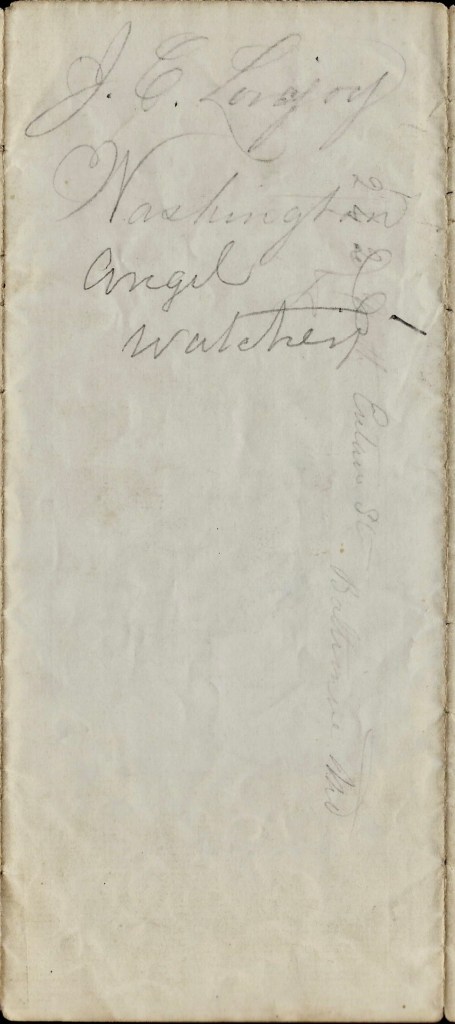 J. E. Lovejoy
Washington
Angel
Watcher
Eutaw St Baltimore Md